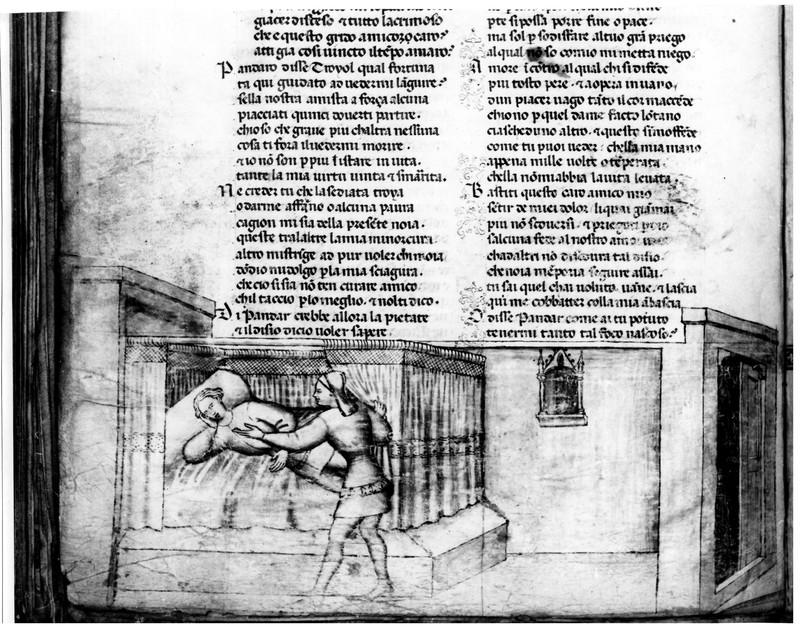 giacer disteso ⁊ tutto lacrimoso
che e questo grido amico mio caro?
atti gia cosi vinto il tẽpo amaro?
Pandaro disse Troyol qual fortuna
ta qui guidato ad vedermi lãgure?
sella nostra amista a força alcuna
piacciati quinci doverti partire.
chioso che grave piu chaltra nessuna
cosa ti fora il vedermi morire.
⁊ io nõ son p piu ĩ istare in vita.
tante la mia virtu vinta ⁊ smarita.
Ne creder tu che lasediata troya
o darme affãno o alcuna paura
cagion mi sia della presẽte noia.
queste tralaltre la mia minor cura
altro mistrĩge ad pur voler chi moia
dõdio mi dolgo p la mia sciagura.
che cio si sia nõ ten curare amico
chil taccio p lo meglio. ⁊ nolti dico.
Di Pandar crebbe allora la pietate
⁊ il disio di cio voler sapere.
pte si possa porre fine o pace.
ma sol p sodisfare al tuo grã priego
al qual nõ so comio mi metta niego.
Amore ĩcõtro al qual chi si difẽde
piu tosto pere. ⁊ aopera in vano.
dun piacer vago tãto il cor maccẽde
chio no p quel da me facto lõtano
ciascheduno altro. ⁊ questo sí moffẽde
come tu puoi veder. chella mia mano
appena mille volte o tẽperata.
chella nõ mi abbia la vita levata.
Bastiti questo caro amico mio
sẽtir de miei dolor. li quai giãmai
piu nõ scoversi. ⁊ priegoti p dio
salcuna fede al nostro amor
chad altri nõ discovra tal disio.
che noia mẽ poria seguire assai.
tu sai quel chai voluto. vãne. ⁊ lascia
qui me cobbatter colla mia ãbascia
O disse Pandar come ai tu potuto
tenermi tanto tal foco nascoso?